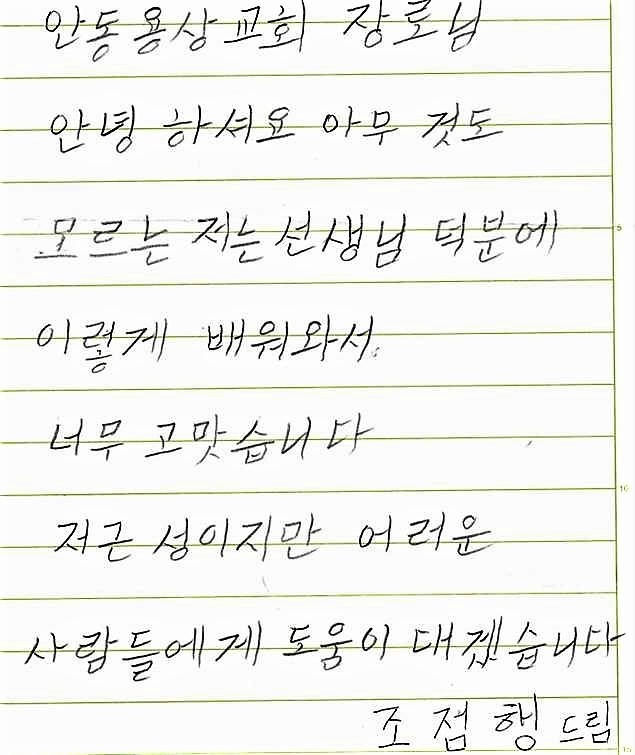 안동용상교회 장로님
안녕 하셔요 아무 것도
모르는 저는 선생님 덕분에
이렇게 배워와서
너무 고맛습니다
저근 성이지만 어러운
사람들에게 도움이 대겠습니다
조점행 드림
5
10